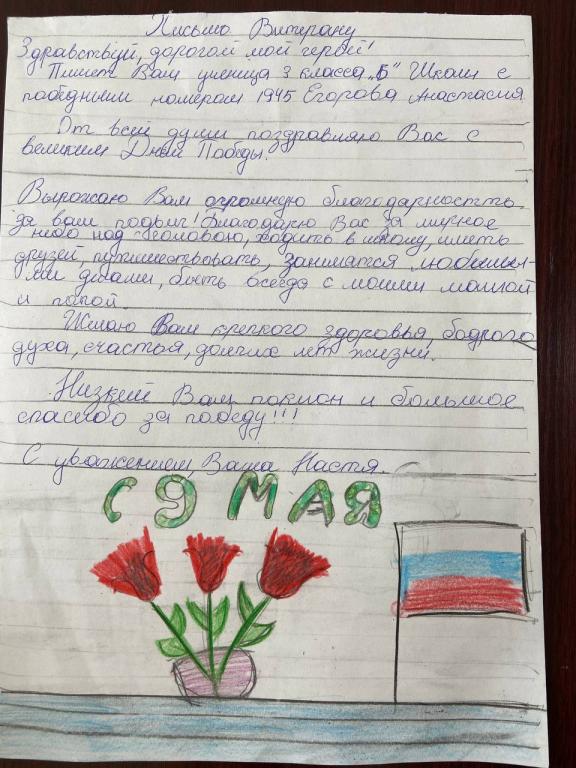 Письмо Витерану
Здравствуй, дорогой мой герой!
Пишет Вам ученица 3 класса „Б" Школы с
победным номером 1945 Егорова Анастасия
От всей души поздравляю Вас с
великим Днём Победы.
Вырожаю Вам огромную благодарностть
за ваш подвиг! Благодарю Вас за мирное
небо над головою, ходить в школу, иметь
друзей, путишествовать, заниматся любимы-
ми делами, быть всегда с моими мамой
и папой.
Желаю Вам крепкого здоровья, бодрого
духа, счастья, долгих лет жизни.
Низкий Вам поклон и большое
спасибо за победу!!!
С уважением, Ваша Настя.
С 9 МАЯ